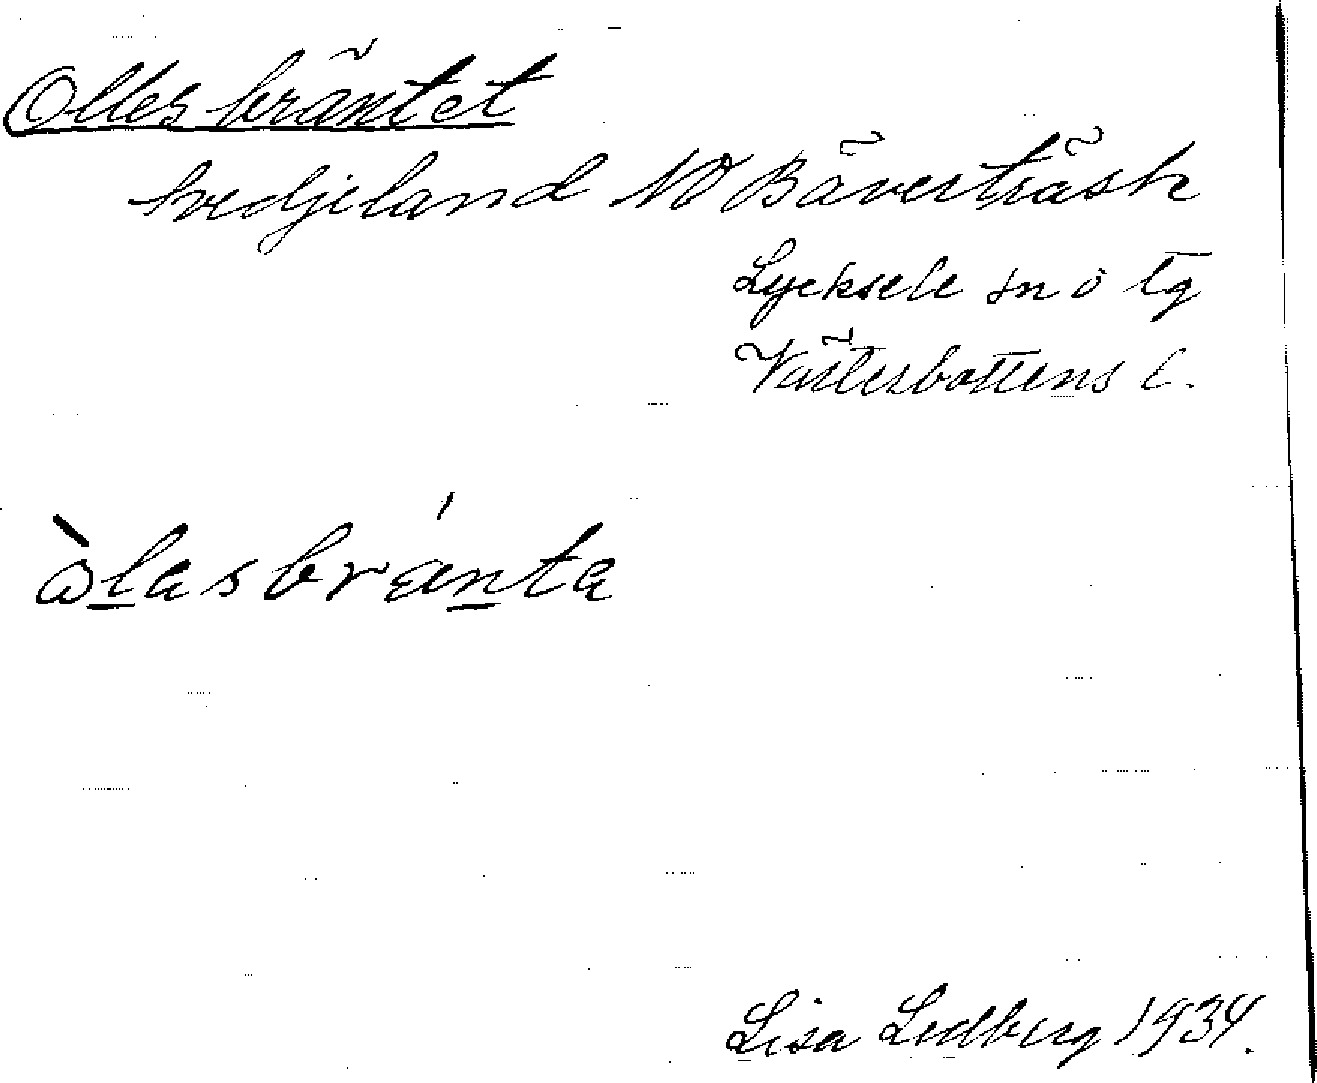 Ollesbräntet
svedjeland NO Bäverträsk
Lycksele sn o tg
Västerbottens l.
òlasbránta
Lisa Lidberg 1934.